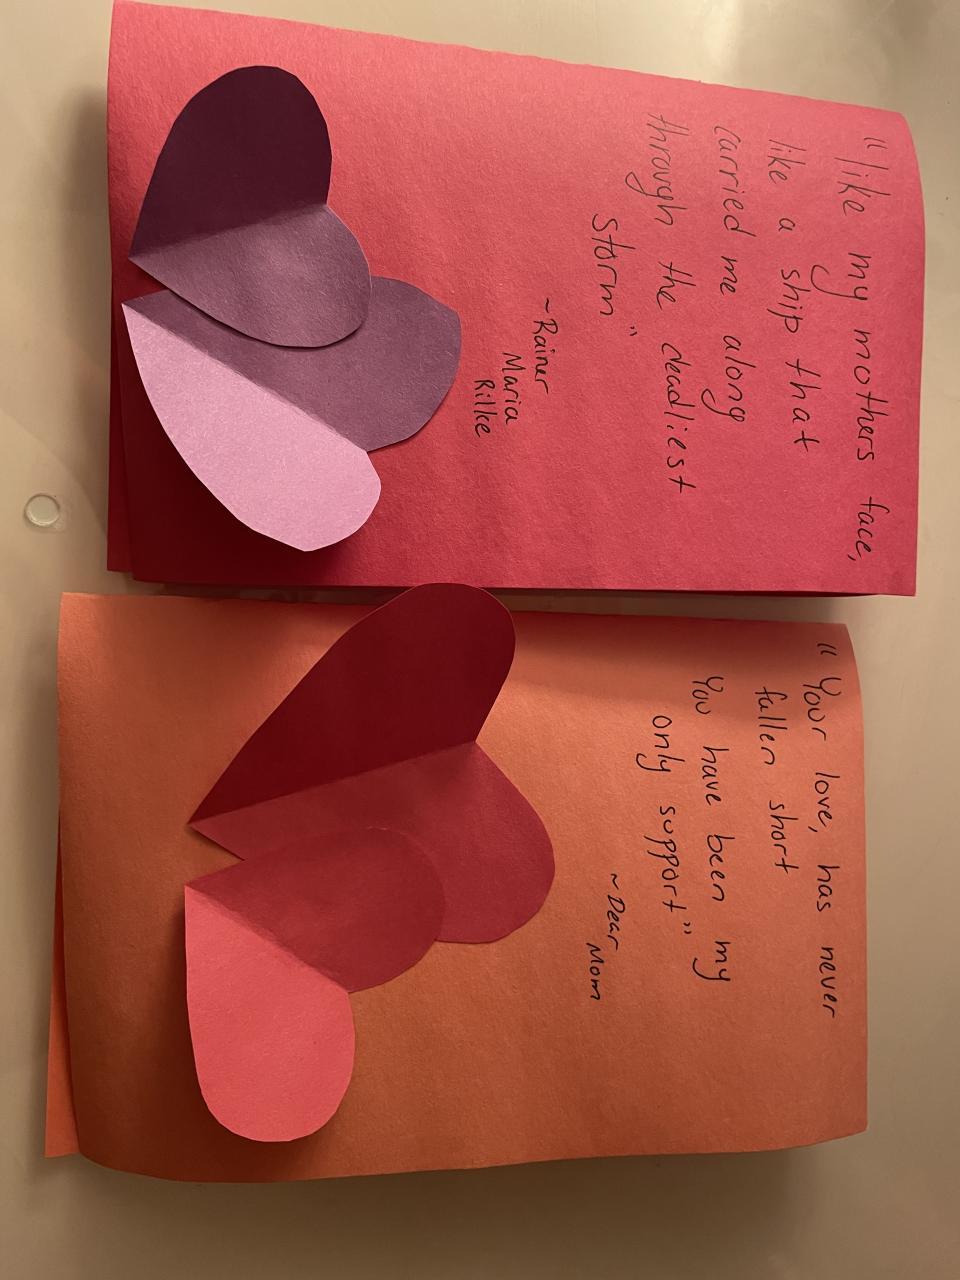 "like my mothers face,
like a ship that
carried me along
through the deadliest
storm"
~Rainer
Maria
Rilke
"Your love, has never
fallen short
You have been my
only support"
~Dear
Mom